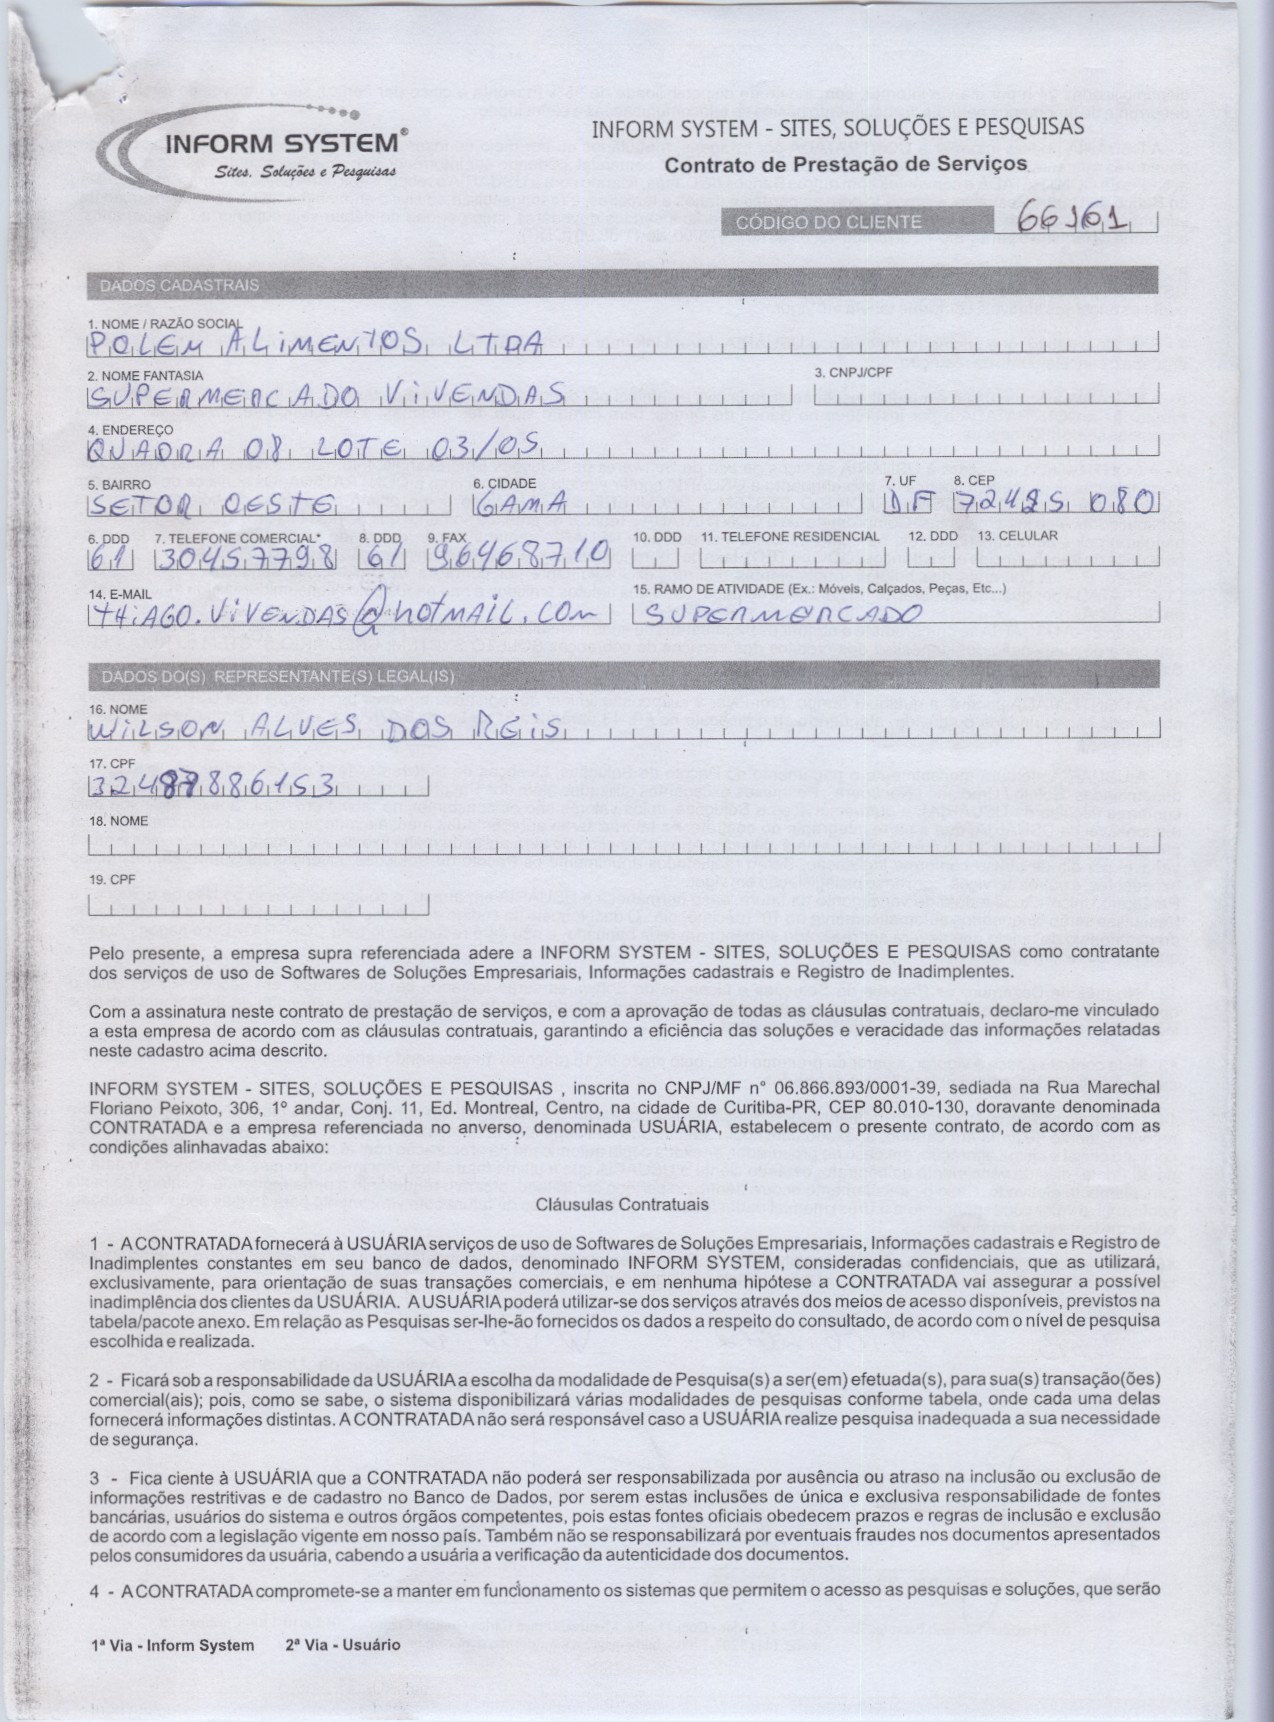 INFORM SYSTEM®
Sites, Soluções e Pesquisas
INFORM SYSTEM - SITES, SOLUÇÕES E PESQUISAS
Contrato de Prestação de Serviços
CÓDIGO DO CLIENTE 66161
DADOS CADASTRAIS
1. NOME / RAZÃO SOCIAL
POLEM ALIMENTOS LTDA
2. NOME FANTASIA 3. CNPJ/CPF
SUPERMERCADO VIVENDAS
4. ENDEREÇO
QUADRA 08 LOTE 03/05
5. BAIRRO 6. CIDADE 7. UF 8. CEP
SETOR OESTE GAMA DF 72425 080
6. DDD 7. TELEFONE COMERCIAL* 8. DDD 9. FAX 10. DDD 11. TELEFONE RESIDENCIAL 12. DDD 13. CELULAR
61 30457798 61 96468710
14. E-MAIL 15. RAMO DE ATIVIDADE (Ex.: Móveis, Calçados, Peças, Etc...)
THIAGO.VIVENDAS@HOTMAIL.COM SUPERMERCADO
DADOS DO(S) REPRESENTANTE(S) LEGAL(IS)
16. NOME
WILSON ALVES DOS REIS
17. CPF
32487886153
18. NOME
19. CPF
Pelo presente, a empresa supra referenciada adere a INFORM SYSTEM - SITES, SOLUÇÕES E PESQUISAS como contratante
dos serviços de uso de Softwares de Soluções Empresariais, Informações cadastrais e Registro de Inadimplentes.
Com a assinatura neste contrato de prestação de serviços, e com a aprovação de todas as cláusulas contratuais, declaro-me vinculado
a esta empresa de acordo com as cláusulas contratuais, garantindo a eficiência das soluções e veracidade das informações relatadas
neste cadastro acima descrito.
INFORM SYSTEM - SITES, SOLUÇÕES E PESQUISAS , inscrita no CNPJ/MF n° 06.866.893/0001-39, sediada na Rua Marechal
Floriano Peixoto, 306, 1º andar, Conj. 11, Ed. Montreal, Centro, na cidade de Curitiba-PR, CEP 80.010-130, doravante denominada
CONTRATADA e a empresa referenciada no anverso, denominada USUÁRIA, estabelecem o presente contrato, de acordo com as
condições alinhavadas abaixo:
Cláusulas Contratuais
1 - A CONTRATADA fornecerá à USUÁRIA serviços de uso de Softwares de Soluções Empresariais, Informações cadastrais e Registro de
Inadimplentes constantes em seu banco de dados, denominado INFORM SYSTEM, consideradas confidenciais, que as utilizará,
exclusivamente, para orientação de suas transações comerciais, e em nenhuma hipótese a CONTRATADA vai assegurar a possível
inadimplência dos clientes da USUÁRIA. A USUÁRIA poderá utilizar-se dos serviços através dos meios de acesso disponíveis, previstos na
tabela/pacote anexo. Em relação as Pesquisas ser-lhe-ão fornecidos os dados a respeito do consultado, de acordo com o nível de pesquisa
escolhida e realizada.
2 - Ficará sob a responsabilidade da USUÁRIA a escolha da modalidade de Pesquisa(s) a ser(em) efetuada(s), para sua(s) transação(ões)
comercial(ais); pois, como se sabe, o sistema disponibilizará várias modalidades de pesquisas conforme tabela, onde cada uma delas
fornecerá informações distintas. A CONTRATADA não será responsável caso a USUÁRIA realize pesquisa inadequada a sua necessidade
de segurança.
3 - Fica ciente à USUÁRIA que a CONTRATADA não poderá ser responsabilizada por ausência ou atraso na inclusão ou exclusão de
informações restritivas e de cadastro no Banco de Dados, por serem estas inclusões de única e exclusiva responsabilidade de fontes
bancárias, usuários do sistema e outros órgãos competentes, pois estas fontes oficiais obedecem prazos e regras de inclusão e exclusão
de acordo com a legislação vigente em nosso país. Também não se responsabilizará por eventuais fraudes nos documentos apresentados
pelos consumidores da usuária, cabendo a usuária a verificação da autenticidade dos documentos.
4 - A CONTRATADA compromete-se a manter em funcionamento os sistemas que permitem o acesso as pesquisas e soluções, que serão
1ª Via - Inform System 2ª Via - Usuário